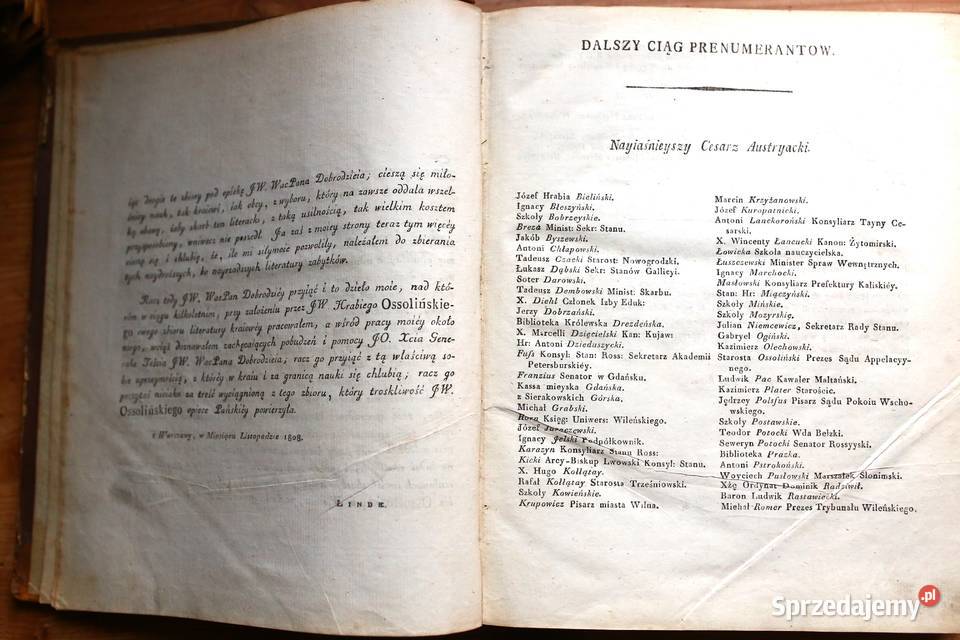 te zbiory pod opiekę JW. WacPana Dobrodzieia; cieszą się miło-
śnicy nauk, tak kraiowi, iak obcy, z wyboru, który na zawsze oddala wszel-
ką obawę, żeby skarb ten literacki, z taką usilnością, tak wielkim kosztem
przysposobiony, wniwecz nie poszedł. Ja zaś z moiey strony teraz tym więcéy
cieszę się i chlubię, że, ile mi siłyność pozwoliły, należałem do zbierania
tych naydroższych, bo nayrzadszych literatury zabytków.
Racz tedy JW. WacPan Dobrodziéy przyiąć i to dzieło moie, nad któ-
rém w ciągu kilkoletnim, przy założeniu przez JW. Hrabiego Ossolińskie-
go swego zbioru literatury kraiowéy pracowałem, a wśród pracy moiéy około
niego, wciąż doznawałem zachęcaiących pobudzeń i pomocy JO. Xcia Gene-
rała Teścia JW. WacPana Dobrodzieia; racz go przyiąć z tą właściwą so-
bie uprzeymością, z któréy w kraiu i za granicą nauki się chlubią; racz go
poczytać nieiako za treść wyciągnioną z tego zbioru, który troskliwość JW.
Ossolińskiego opiece Pańskiéy powierzyła.
w Warszawy, w Miesiącu Listopadzie 1808.
LINDE.
DALSZY CIĄG PRENUMERANTOW.
Nayiaśnieyszy Cesarz Austryacki.
Józef Hrabia Bieliński.
Ignacy Bleszyński.
Szkoły Bobrzeyskie.
Breza Minist: Sekr: Stanu.
Jakób Byszewski.
Antoni Chłapowski.
Tadeusz Czacki Starost: Nowogrodzki.
Łukasz Dąbski Sekr: Stanów Gallicyi.
Soter Darowski.
Tadeusz Dembowski Minist: Skarbu.
X. Diehl Członek Izby Eduk:
Jerzy Dobrzański.
Biblioteka Królewska Drezdeńska.
X. Marcelli Dzięcielski Kan: Kujaw:
Hr: Antoni Dzieduszycki.
Fuss Konsyl: Stan: Ross: Sekretarz Akademii
Petersburskiéy.
Franzius Senator w Gdańsku.
Kassa mieyska Gdańska.
z Sierakowskich Górska.
Michał Grabski.
Księg: Uniwers: Wileńskiego.
Józef Jaraczewski.
Ignacy Jelski Podpółkownik.
Karazyn Konsyliarz Stanu Ross:
Kicki Arcy-Biskup Lwowski Konsyl: Stanu.
X. Hugo Kołłątay.
Rafał Kołłątay Starosta Trześniowski.
Szkoły Kowieńskie.
Krupowicz Pisarz miasta Wilna.
Marcin Krzyżanowski.
Józef Kuropatnicki.
Antoni Lanckoroński Konsyliarz Tayny Ce-
sarski.
X. Wincenty Łancucki Kanon: Żytomirski.
Łowicka Szkoła nauczycielska.
Łuszczewski Minister Spraw Wewnętrznych.
Ignacy Marchocki.
Masłowski Konsyliarz Prefektury Kaliskiéy.
Stan: Hr: Miączyński.
Szkoły Mińskie.
Szkoły Mozyrskię.
Julian Niemcewicz, Sekretarz Rady Stanu.
Gabryel Ogiński.
Kazimierz Olechowski.
Starosta Ossoliński Prezes Sądu Appelacyy-
nego.
Ludwik Pac Kawaler Maltański.
Kazimierz Plater Starościc.
Jędrzey Polsfus Pisarz Sądu Pokoiu Wscho-
wskiego.
Szkoły Postawskie.
Teodor Potocki Wda Bełzki.
Seweryn Potocki Senator Rossyyski.
Biblioteka Prazka.
Antoni Pstrokoński.
Woyciech Pusłowski Marszałek Słonimski.
Xżę Ordynat Dominik Radziwił.
Baron Ludwik Rastawiecki.
Michał Romer Prezes Trybunału Wileńskiego.
Sprzedajemy.pl